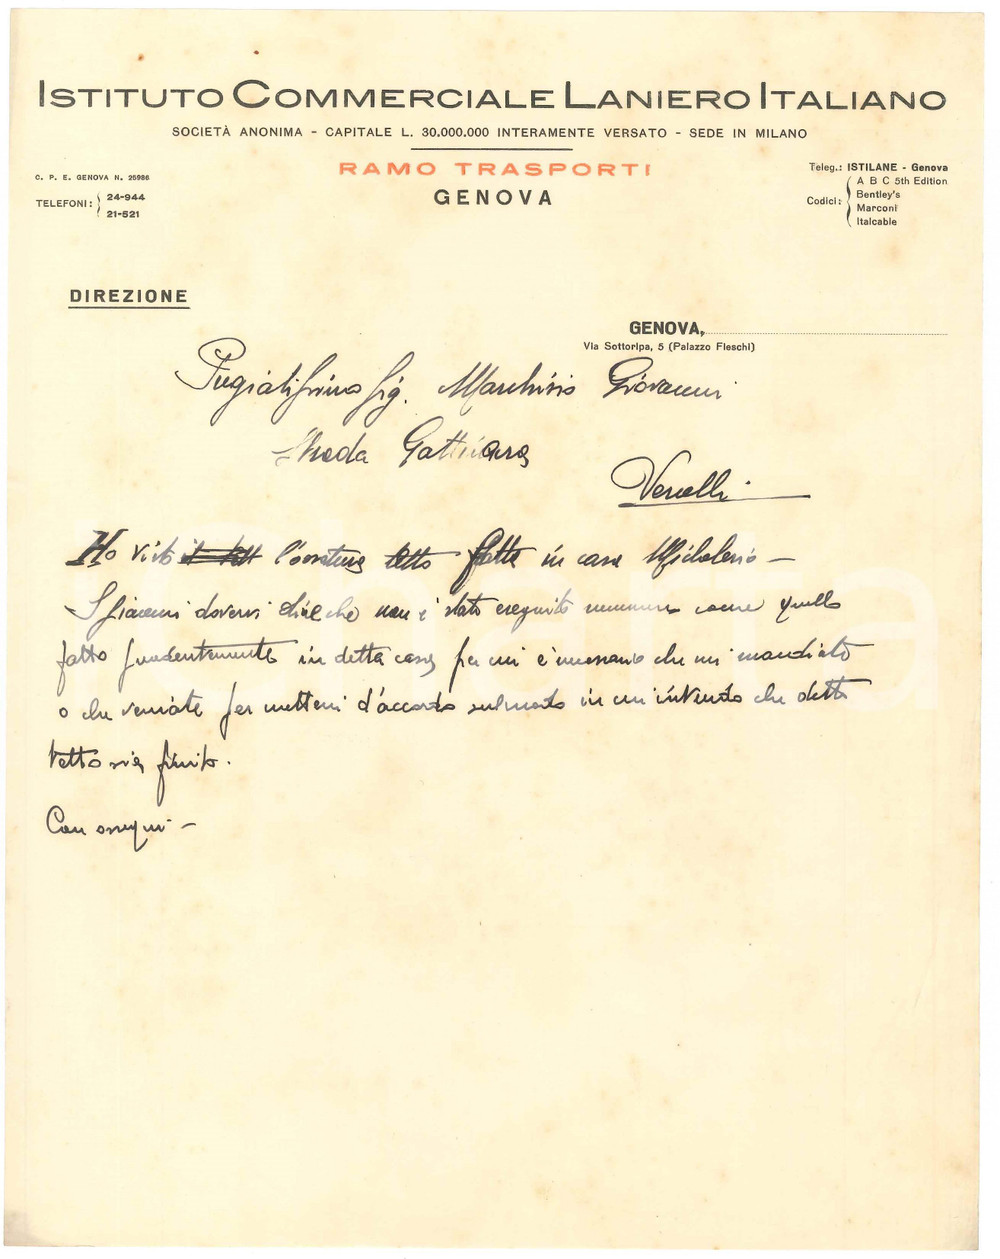 ISTITUTO COMMERCIALE LANIERO ITALIANO
SOCIETÀ ANONIMA - CAPITALE L. 30.000.000 INTERAMENTE VERSATO - SEDE IN MILANO
RAMO TRASPORTI
GENOVA
C. P. E. GENOVA N. 25986
TELEFONI: 24-944
21-521
Teleg.: ISTILANE - Genova
Codici: A B C 5th Edition
Bentley's
Marconi
Italcable
DIREZIONE
GENOVA,
Via Sottoripa, 5 (Palazzo Fieschi)
Pregiatissimo Sig. Marchisio Giovanni
Strada Gattinara
Vercelli
Ho visto il tetto l'ossatura tetto fatta in casa Michelerio -
Spiacemi dovervi dire che non è stato eseguito come quello
fatto precedentemente in detta casa per cui è necessario che mi mandiate
o che veniate per mettersi d'accordo in cui intendo che detto
tetto sia finito.
Con ossequi -